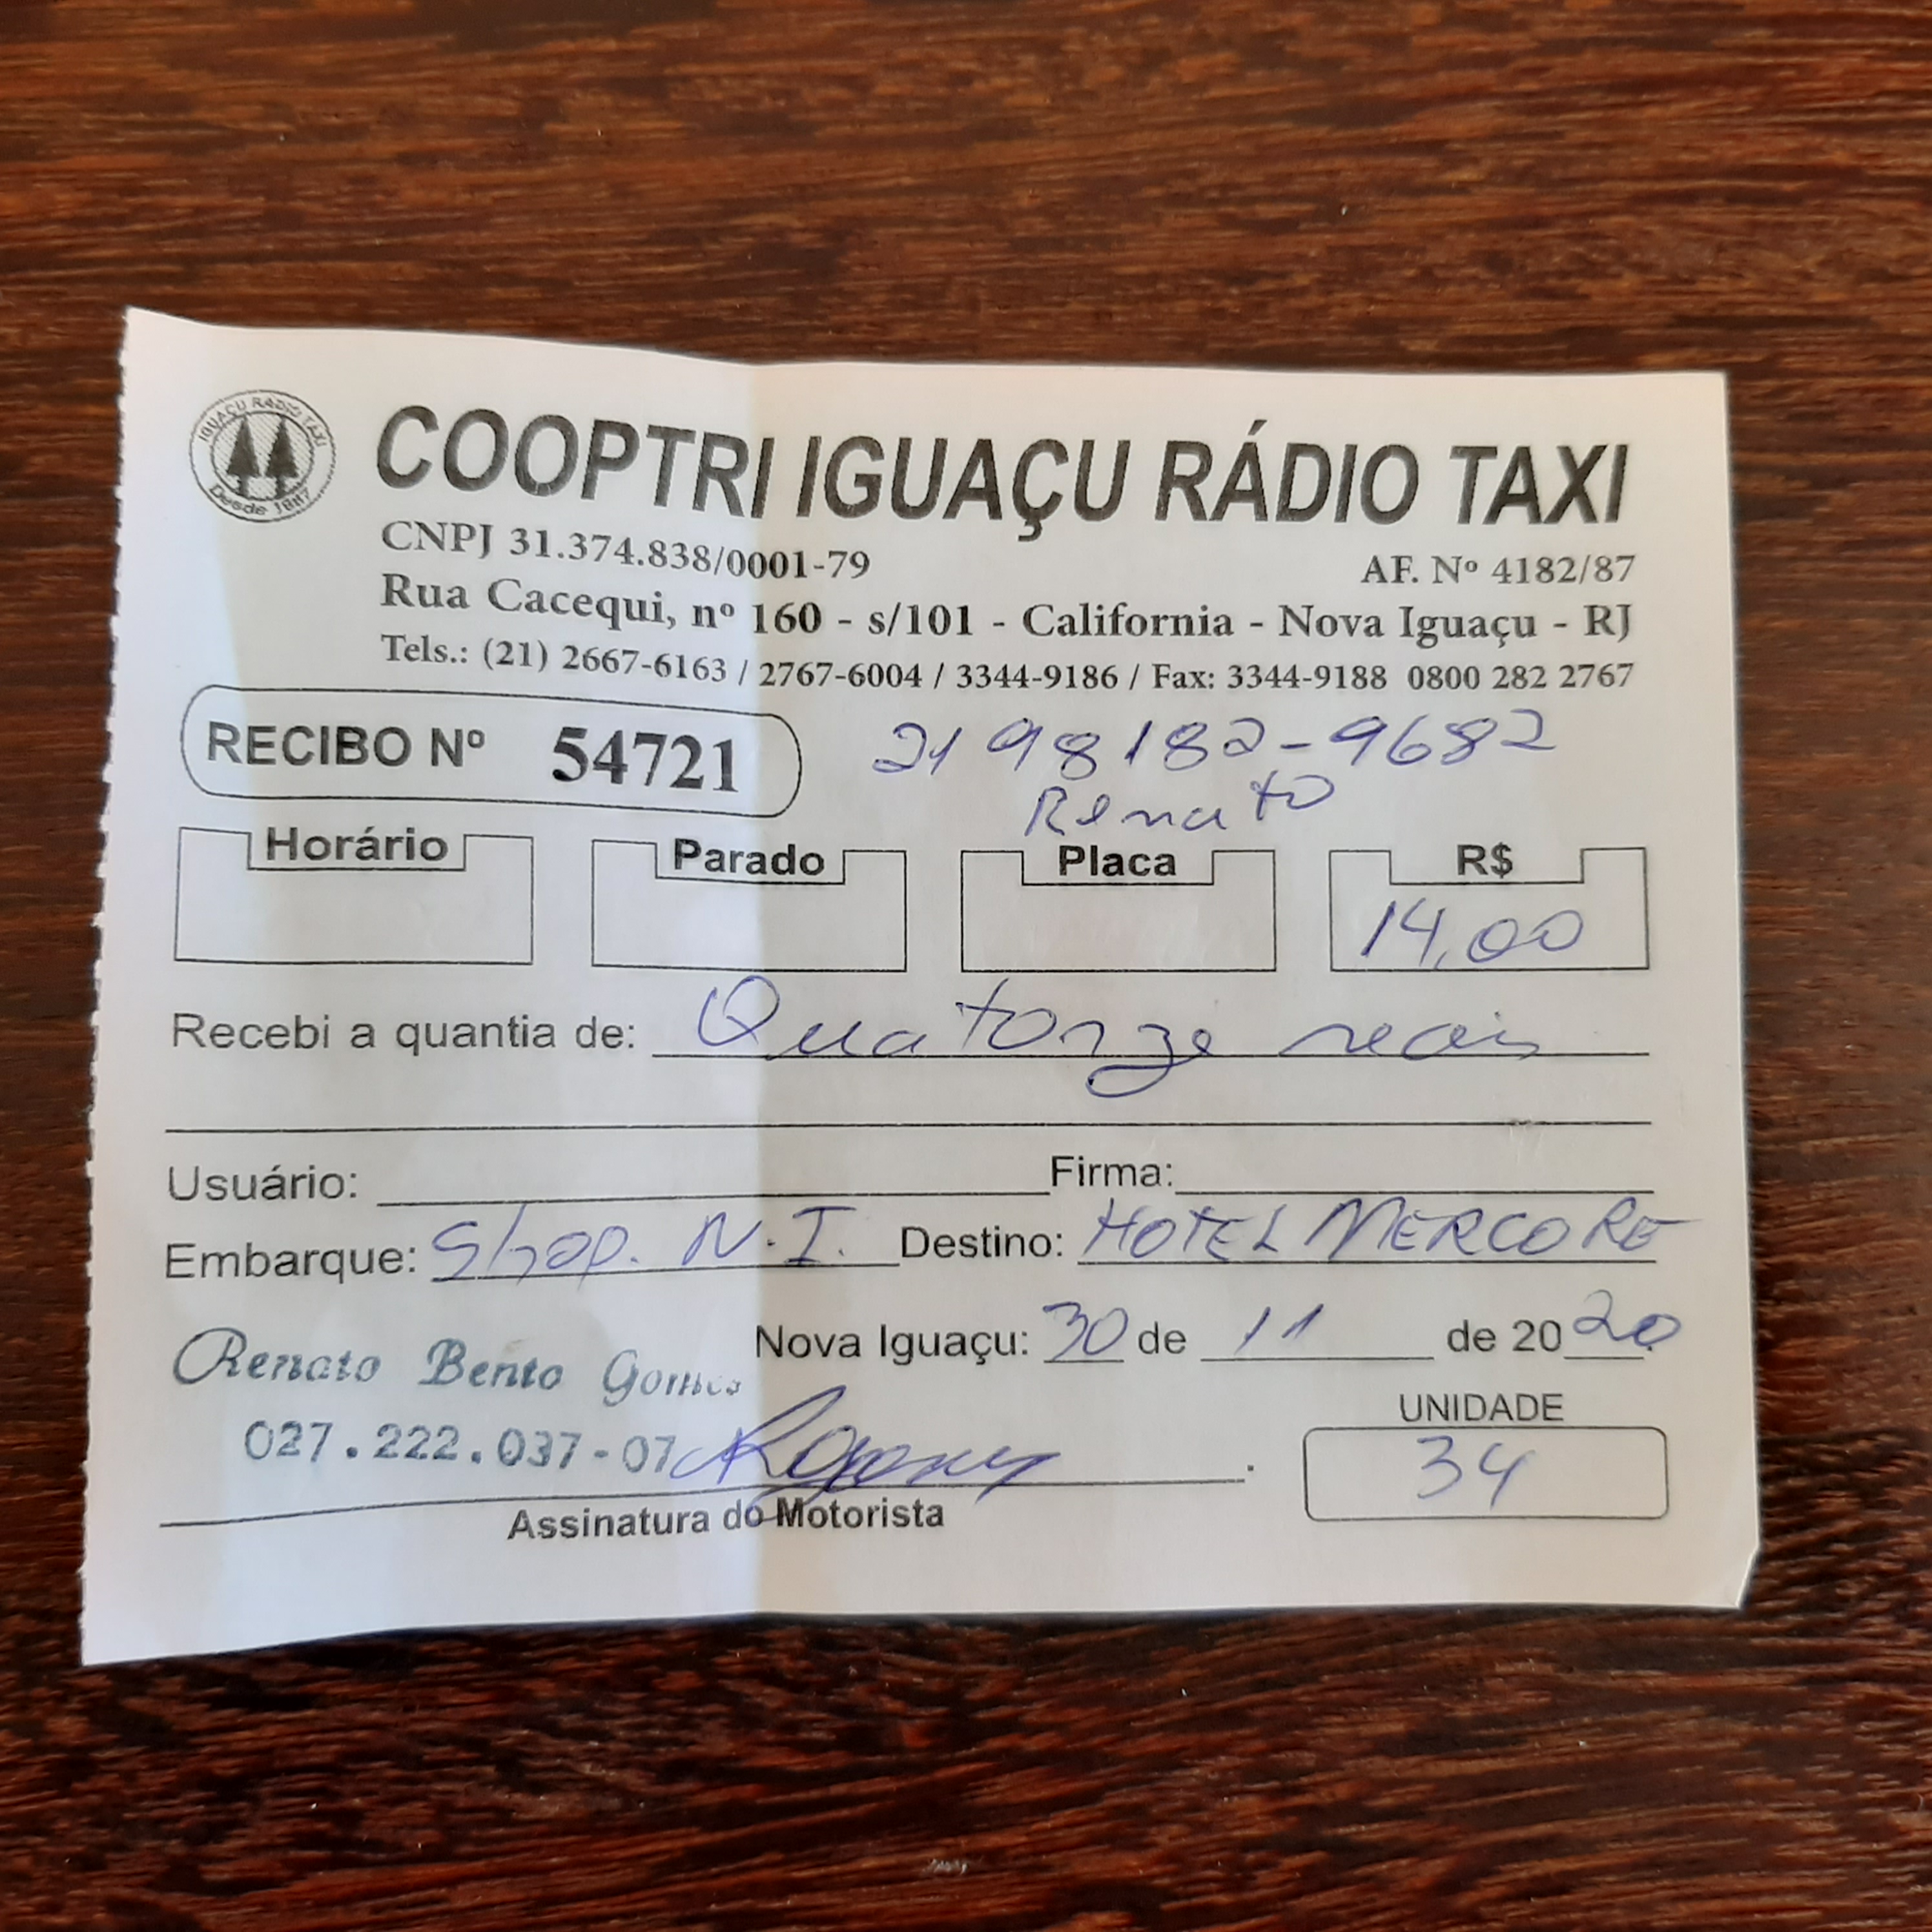 COOPTRI IGUAÇU RÁDIO TAXI
IGUAÇU RADIO TAXI
Desde 1987
CNPJ 31.374.838/0001-79 AF. Nº 4182/87
Rua Cacequi, nº 160 - s/101 - California - Nova Iguaçu - RJ
Tels.: (21) 2667-6163 / 2767-6004 / 3344-9186 / Fax: 3344-9188 0800 282 2767
RECIBO Nº 54721
21 98182-9682
Renato
Horário Parado Placa R$
14,00
Recebi a quantia de: Quatorze reais
Usuário: Firma:
Embarque: Shop. N.I. Destino: HOTEL MERCORE
Nova Iguaçu: 30 de 11 de 2020
Renato Bento Gomes
027.222.037-07
Assinatura do Motorista
UNIDADE
34